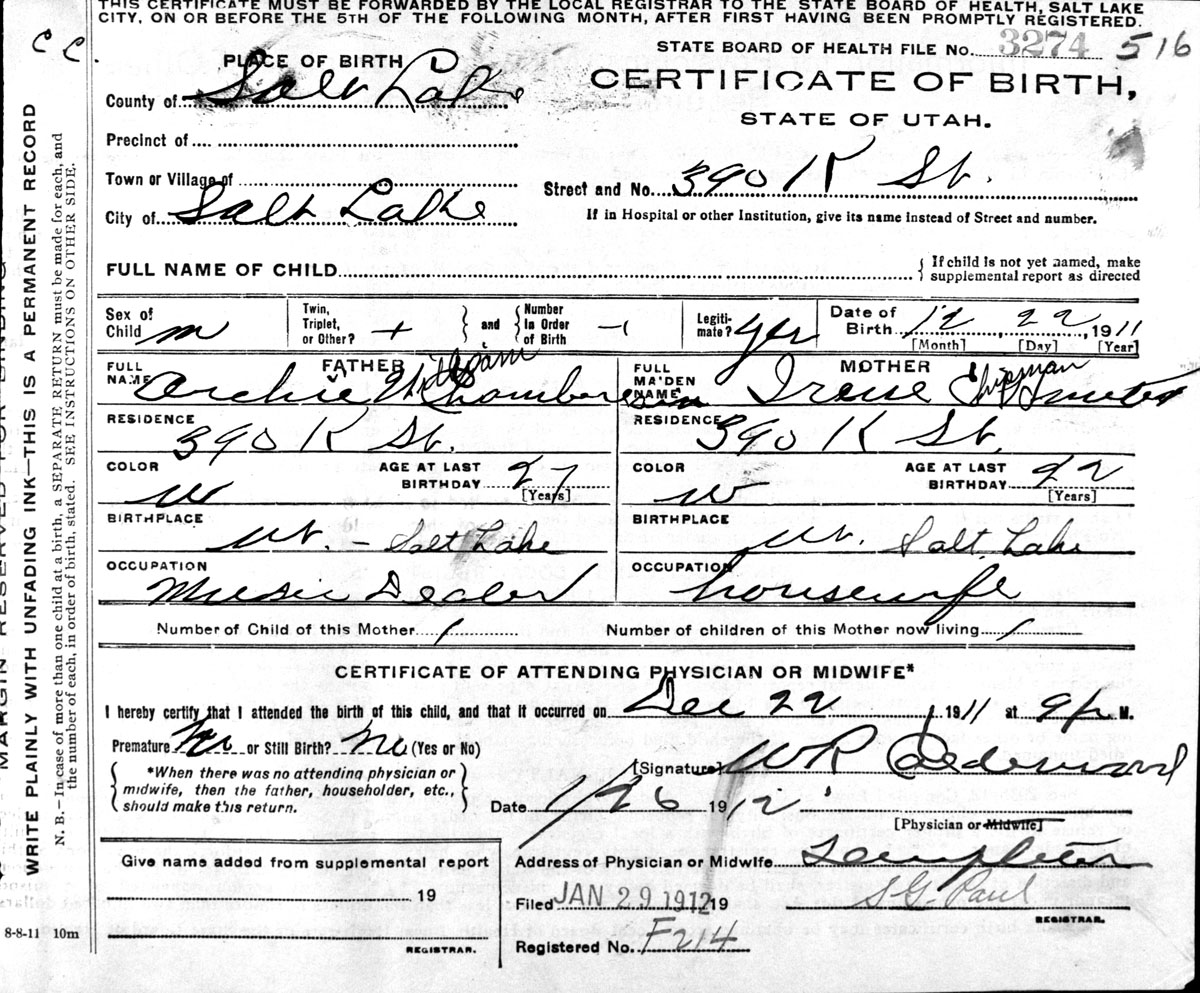 THIS CERTIFICATE MUST BE FORWARDED BY THE LOCAL REGISTRAR TO THE STATE BOARD OF HEALTH, SALT LAKE
CITY, ON OR BEFORE THE 5TH OF THE FOLLOWING MONTH, AFTER FIRST HAVING BEEN PROMPTLY REGISTERED.
STATE BOARD OF HEALTH FILE No. 3274 516
PLACE OF BIRTH
CERTIFICATE OF BIRTH,
STATE OF UTAH.
County of Salt Lake
Precinct of
Town or Village of
Street and No. 390 K St.
City of Salt Lake
If in Hospital or other Institution, give its name instead of Street and number.
FULL NAME OF CHILD
If child is not yet named, make
supplemental report as directed
Sex of Child m
Twin, Triplet, or Other? +
and
Number in Order of Birth
Legitimate? yes
Date of Birth 12 22 1911
[Month] [Day] [Year]
FATHER
FULL NAME Archie
RESIDENCE 390 K St.
COLOR W
AGE AT LAST BIRTHDAY 27
[Years]
BIRTHPLACE Ut. - Salt Lake
OCCUPATION Music Dealer
MOTHER
FULL MAIDEN NAME Irene Chipman
RESIDENCE 390 K St.
COLOR W
AGE AT LAST BIRTHDAY 22
[Years]
BIRTHPLACE Ut. Salt Lake
OCCUPATION housewife
Number of Child of this Mother 1
Number of children of this Mother now living 1
CERTIFICATE OF ATTENDING PHYSICIAN OR MIDWIFE*
I hereby certify that I attended the birth of this child, and that it occurred on Dec 22 1911 at 9 p M.
Premature No or Still Birth? No (Yes or No)
*When there was no attending physician or
midwife, then the father, householder, etc.,
should make this return.
[Signature] WR Calderwood
Date 1/26 1912
[Physician or Midwife]
Give name added from supplemental report
19
REGISTRAR.
Address of Physician or Midwife Templeton
Filed JAN 29 1912 19
S. G. Paul
REGISTRAR.
Registered No. F214
8-8-11 10m
C C
MARGIN RESERVED FOR BINDING
WRITE PLAINLY WITH UNFADING INK—THIS IS A PERMANENT RECORD
N. B.—In case of more than one child at a birth, a SEPARATE RETURN must be made for each, and
the number of each, in order of birth, stated. SEE INSTRUCTIONS ON OTHER SIDE.